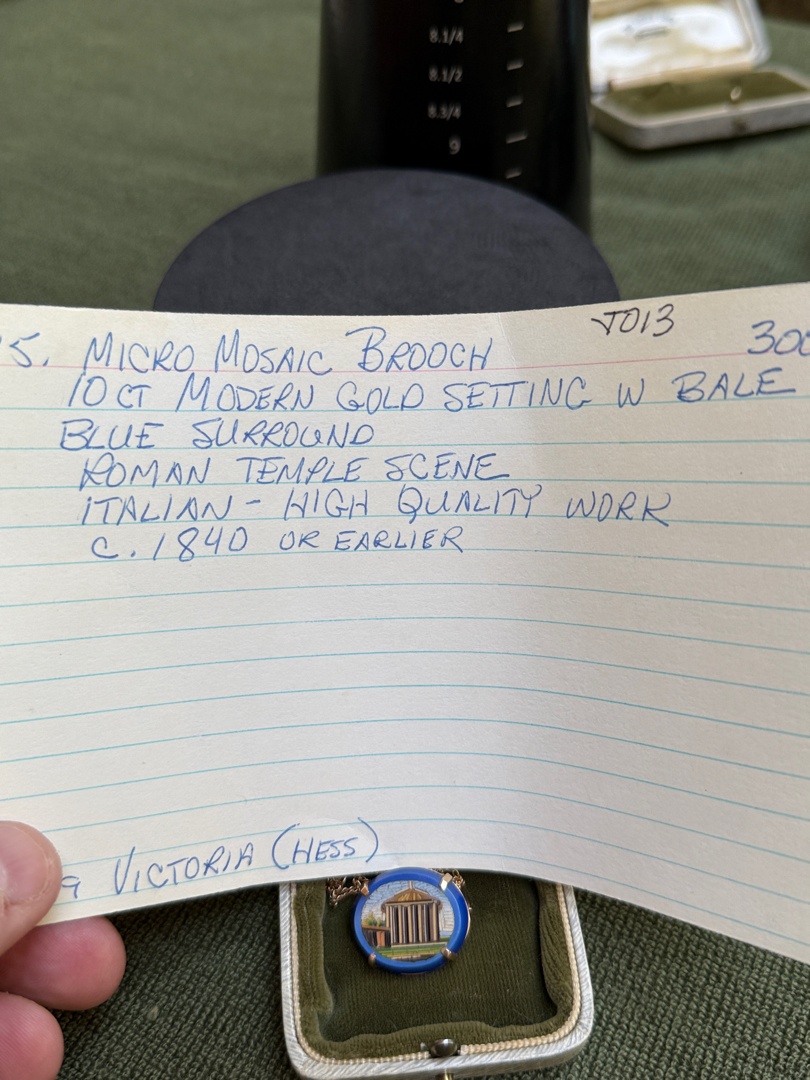 8.1/4
8.1/2
8.3/4
9
5. MICRO MOSAIC BROOCH J013 300
10 CT MODERN GOLD SETTING W BALE
BLUE SURROUND
ROMAN TEMPLE SCENE
ITALIAN - HIGH QUALITY WORK
C. 1840 OR EARLIER
VICTORIA (HESS)